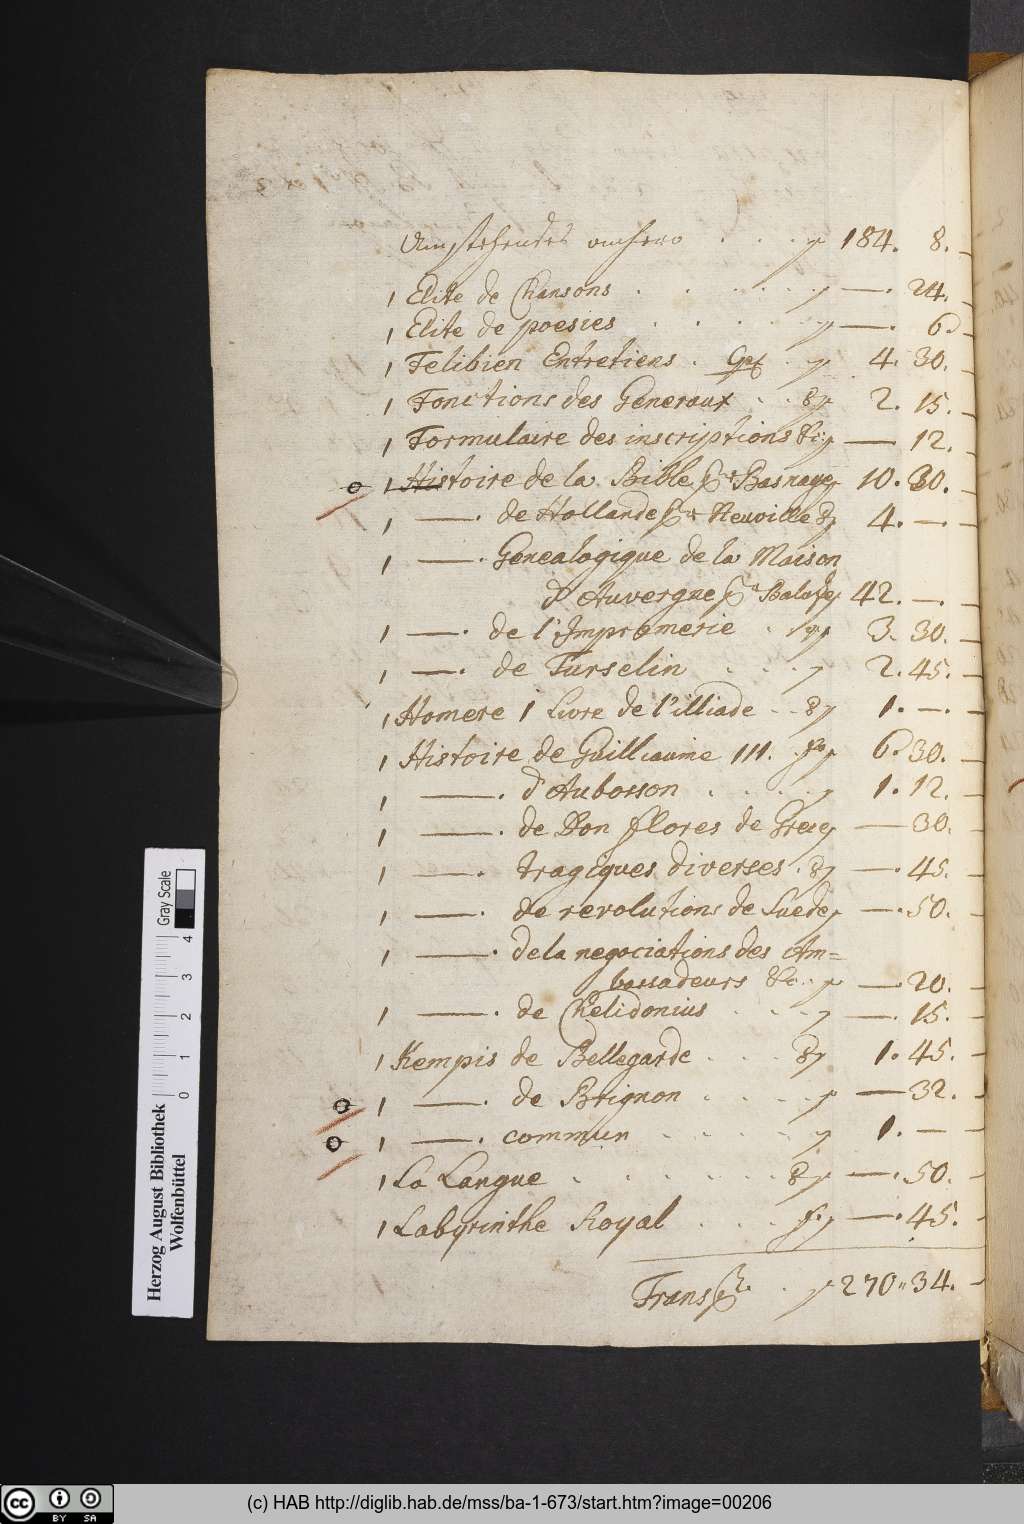 184. 8.
1 Elite de Chansons . . . . . — . 24.
1 Elite de poesies . . . . — . 6
1 Felibien Entretiens . . 4. 30.
1 Fonctions des Generaux . . 2. 15.
1 Formulaire des inscriptions &c — 12.
1 Histoire de la Bible Basnage 10. 30.
1 — . de Hollande Neuville 4. —
1 — . Genealogique de la Maison
d'Auvergne 42. —
1 — . de l'Impremerie . 3. 30.
1 — . de Turselin . . . 2. 45.
1 Homere 1 Livre de l'illiade . . 1. —
1 Histoire de Guilliaume III. 6. 30.
1 — . d'Aubosson . . . . 1. 12.
1 — . de Don flores de Grece — 30.
1 — . tragiques diverses . — . 45.
1 — . de revolutions de Suede — . 50.
1 — . de la negociations des Am=
bassadeurs &c. . — . 20.
1 — . de Chelidonius . . . — . 15.
1 Kempis de Bellegarde . . . 1. 45.
1 — . de Brignon . . . . — 32.
1 — . commun . . . . 1. —
1 La Langue . . . . . — . 50.
1 Labyrinthe Royal . . . — . 45.
Transp . 270 " 34.
Gray Scale
0 1 2 3 4
Herzog August Bibliothek
Wolfenbüttel
cc BY SA
(c) HAB http://diglib.hab.de/mss/ba-1-673/start.htm?image=00206